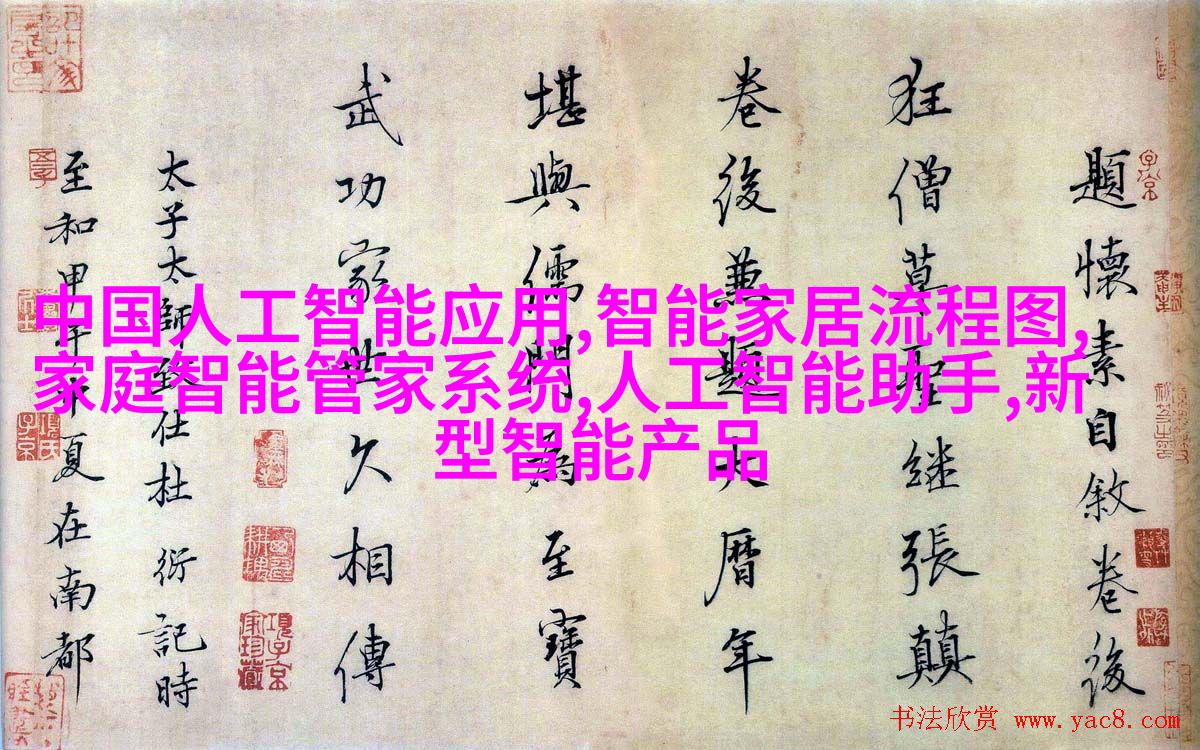 題懷素自敘卷後
狂僧草聖継張顛
卷後兼題大曆年
堪與儒門為至寶
武功家世久相傳
太子太師致仕杜 衍記時
至和甲午 夏在南都
中国人工智能应用,智能家居流程图,
家庭智能管家系统,人工智能助手,新
型智能产品
子京
項子京家珍藏
书法欣赏 www.yac8.com